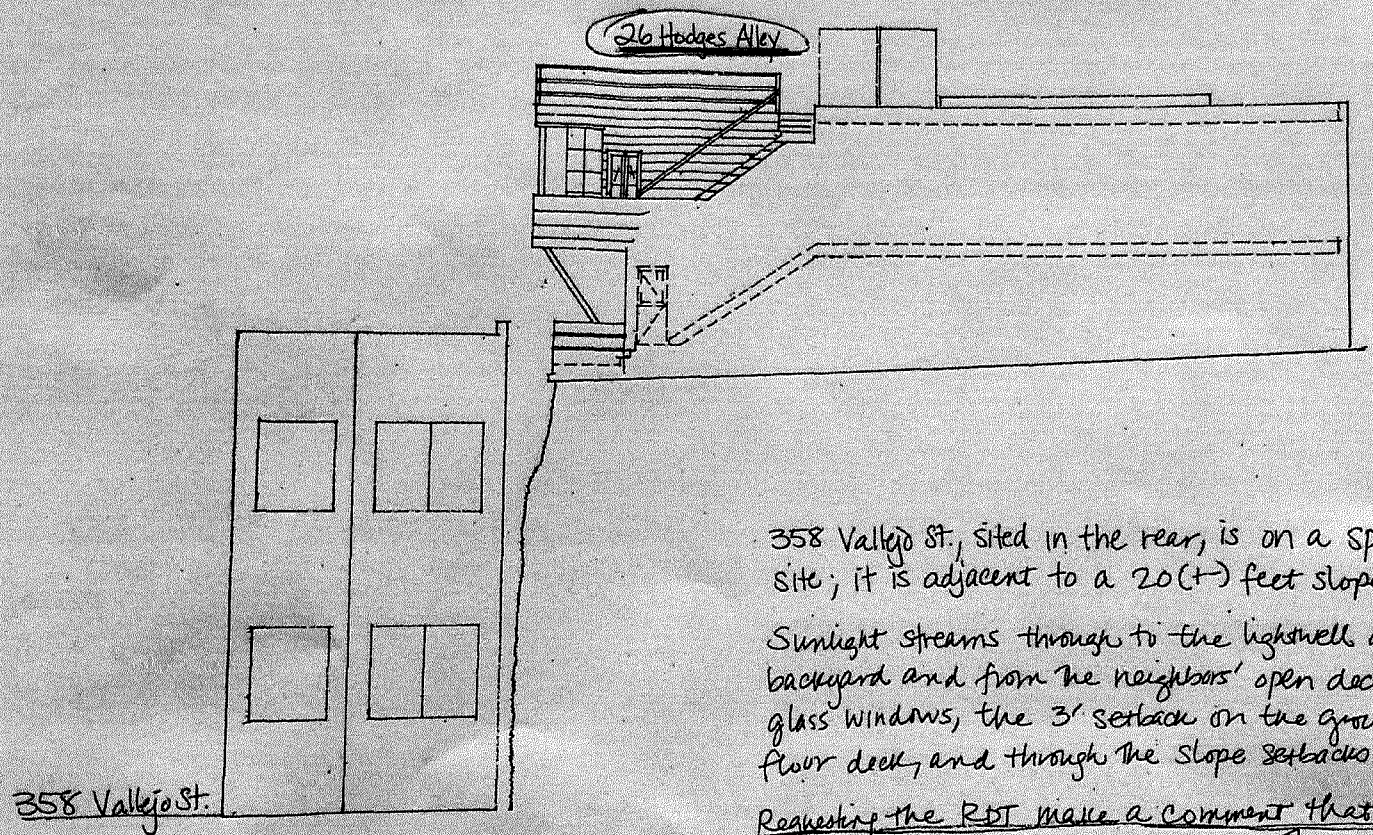 26 Hodges Alley
358 Vallejo St., sited in the rear, is on a
site; it is adjacent to a 20(+-) feet
Sunlight streams through to the lightwell
backyard and from the neighbors' open
glass windows, the 3' setback on the
floor deck, and through the slope setbacks
358 Vallejo St.
Requesting the RDT make a comment that